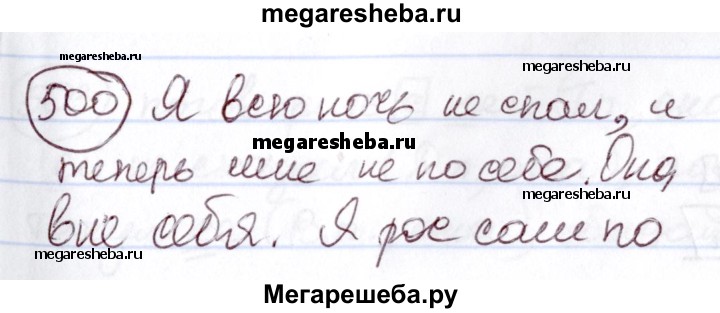 megaresheba.ru
megaresheba.ru
500 Я всю ночь не спал, и
megaresheba.ru
теперь мне не по себе. Она
megaresheba.ru
вне себя. Я рос сам по
megaresheba.ru
Мегарешеба.ру